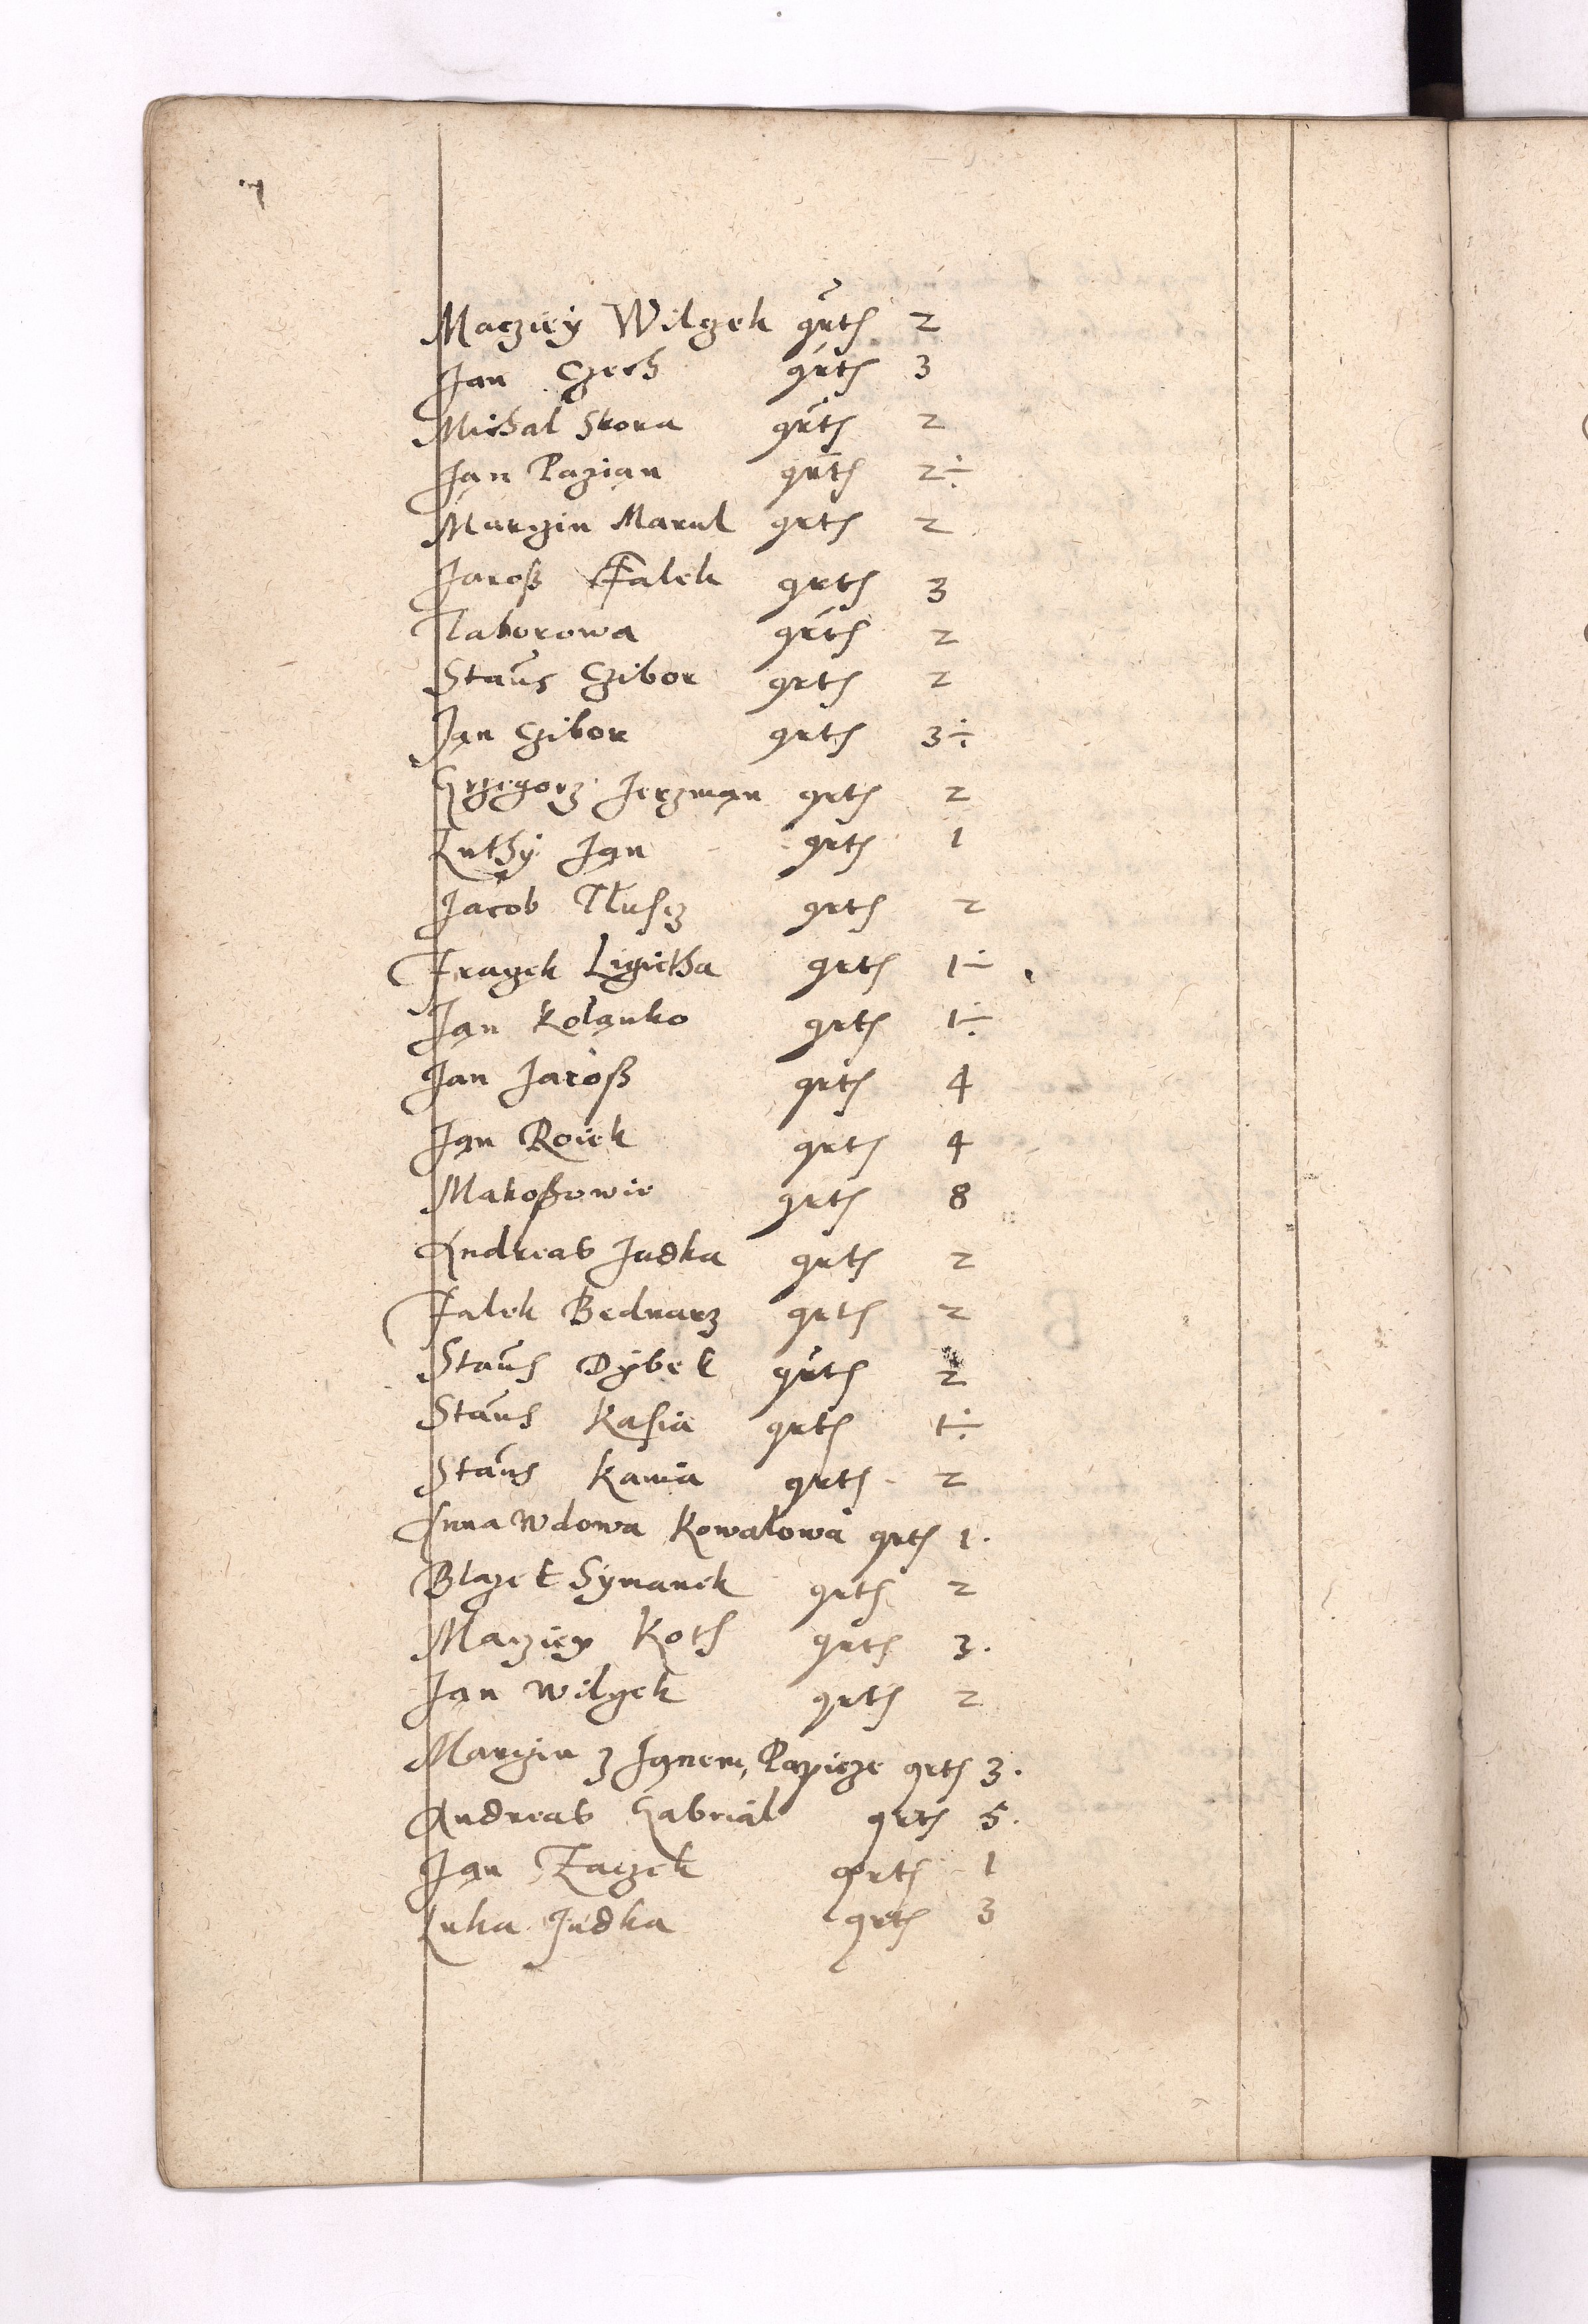 Macziey Wilczek qrth 2
Jan Czech qrth 3
Michal Skora qrth 2
Jan Pazian qrth 2÷
Marczin Marul qrth 2
Jaroß Falek qrth 3
Taborowa qrth 2
Stans Czibor qrth 2
Jan Czibor qrth 3÷
Grzegorz Jerzman qrth 2
Luthy Jan qrth 1
Jacob Tluscz qrth 2
Fraczek Ligietha qrth 1÷
Jan Kolanko qrth 1÷
Jan Jaroß qrth 4
Jan Roiek qrth 4
Makoßowie qrth 8
Andreas Judka qrth 2
Falek Bednarz qrth 2
Stans Dybek qrth 2
Stans Kasia qrth 1÷
Stans Kania qrth 2
Anna Wdowa Kowalowa qrth 1.
Blazek Symanek qrth 2
Macziey Koth qrth 3.
Jan Wilczek qrth 2
Marczin z Janem, Papieze qrth 3.
Andreas Gabrial qrth 5.
Jan Zaczek qrth 1
Luka Judka qrth 3